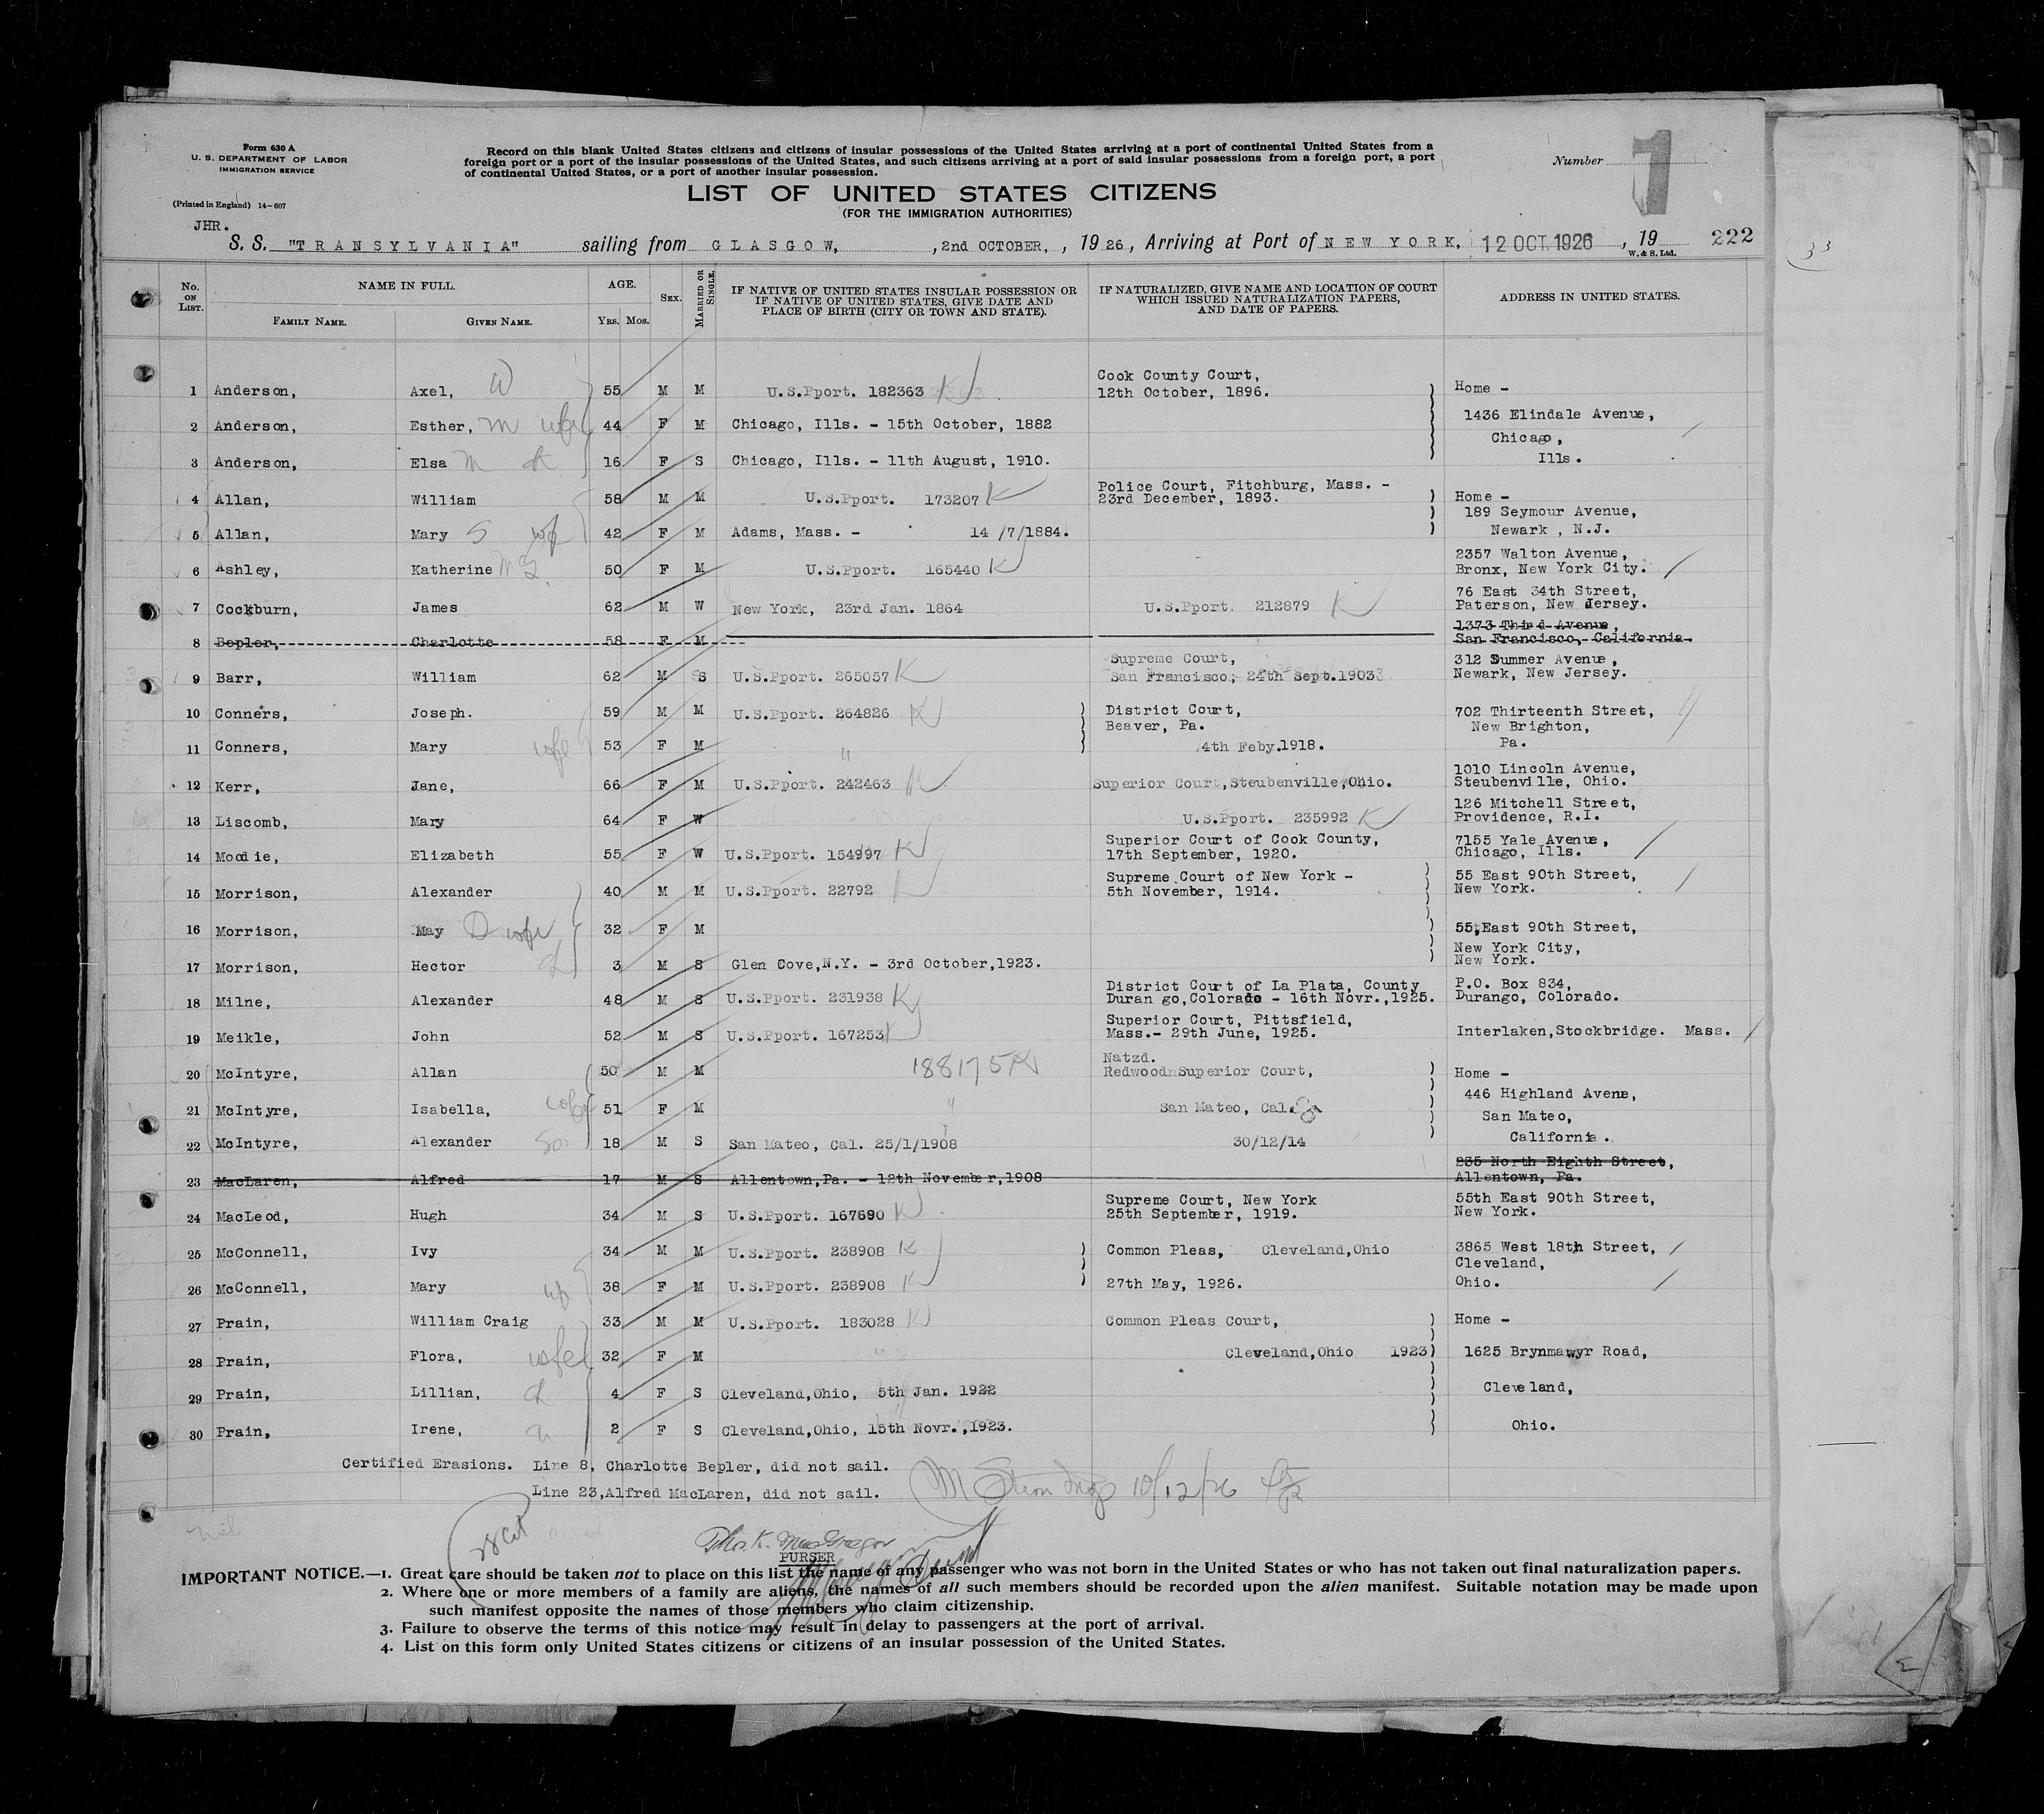 Form 630 A
U. S. DEPARTMENT OF LABOR
IMMIGRATION SERVICE
(Printed in England) 14-607
Record on this blank United States citizens and citizens of insular possessions of the United States arriving at a port of continental United States from a
foreign port or a port of the insular possessions of the United States, and such citizens arriving at a port of said insular possessions from a foreign port, a port
of continental United States, or a port of another insular possession.
Number 1
LIST OF UNITED STATES CITIZENS
(FOR THE IMMIGRATION AUTHORITIES)
JHR.
S. S. "TRANSYLVANIA" sailing from GLASGOW, , 2nd OCTOBER, , 1926, Arriving at Port of NEW YORK, 12 OCT 1926 , 19 222
W. & S. Ltd.
33
No. ON LIST. NAME IN FULL. AGE. SEX. MARRIED OR SINGLE. IF NATIVE OF UNITED STATES INSULAR POSSESSION OR IF NATIVE OF UNITED STATES, GIVE DATE AND PLACE OF BIRTH (CITY OR TOWN AND STATE). IF NATURALIZED, GIVE NAME AND LOCATION OF COURT WHICH ISSUED NATURALIZATION PAPERS, AND DATE OF PAPERS. ADDRESS IN UNITED STATES.
FAMILY NAME. GIVEN NAME. YRS. MOS.
Cook County Court,
1 Anderson, Axel, W 55 M M U.S.Pport. 182363 K 12th October, 1896. Home -
2 Anderson, Esther, m wife 44 F M Chicago, Ills. - 15th October, 1882 1436 Elindale Avenue,
Chicago,
3 Anderson, Elsa m d 16 F S Chicago, Ills. - 11th August, 1910. Ills.
Police Court, Fitchburg, Mass. -
4 Allan, William 58 M M U.S.Pport. 173207 K 23rd December, 1893. Home -
189 Seymour Avenue,
5 Allan, Mary S wf 42 F M Adams, Mass. - 14/7/1884. Newark , N.J.
2357 Walton Avenue,
6 Ashley, Katherine 50 F M U.S.Pport. 165440 K Bronx, New York City.
76 East 34th Street,
7 Cockburn, James 62 M W New York, 23rd Jan. 1864 U.S.Pport. 212879 K Paterson, New Jersey.
1373 Third Avenue,
8 Bepler, Charlotte 58 F M San Francisco, California.
Supreme Court, 312 Summer Avenue,
9 Barr, William 62 M S U.S.Pport. 265057 K San Francisco, 24th Sept.1903 Newark, New Jersey.
10 Conners, Joseph. 59 M M U.S.Pport. 264826 K District Court, 702 Thirteenth Street,
Beaver, Pa. New Brighton,
11 Conners, Mary wife 53 F M " 4th Feby.1918. Pa.
1010 Lincoln Avenue,
12 Kerr, Jane, 66 F M U.S.Pport. 242463 K Superior Court,Steubenville,Ohio. Steubenville, Ohio.
126 Mitchell Street,
13 Liscomb, Mary 64 F W U.S.Pport. 235992 K Providence, R.I.
Superior Court of Cook County, 7155 Yale Avenue,
14 Moodie, Elizabeth 55 F W U.S.Pport. 154997 K 17th September, 1920. Chicago, Ills.
Supreme Court of New York - 55 East 90th Street,
15 Morrison, Alexander 40 M M U.S.Pport. 22792 K 5th November, 1914. New York.
16 Morrison, May D wife 32 F M 55,East 90th Street,
New York City,
17 Morrison, Hector 3 M S Glen Cove,N.Y. - 3rd October,1923. New York.
District Court of La Plata, County P.O. Box 834,
18 Milne, Alexander 48 M S U.S.Pport. 231938 K Duran go,Colorado - 16th Novr.,1925. Durango, Colorado.
Superior Court, Pittsfield,
19 Meikle, John 52 M S U.S.Pport. 167253 K Mass.- 29th June, 1925. Interlaken,Stockbridge. Mass.
Natzd.
20 McIntyre, Allan 50 M M 188175 K Redwood Superior Court, Home -
446 Highland Avene,
21 McIntyre, Isabella, wife 51 F M " San Mateo, Cal. San Mateo,
22 McIntyre, Alexander Son 18 M S San Mateo, Cal. 25/1/1908 30/12/14 California.
235 North Eighth Street,
23 MacLaren, Alfred 17 M S Allentown,Pa. - 12th November,1908 Allentown, Pa.
Supreme Court, New York 55th East 90th Street,
24 MacLeod, Hugh 34 M S U.S.Pport. 167690 K 25th September, 1919. New York.
25 McConnell, Ivy 34 M M U.S.Pport. 238908 K Common Pleas, Cleveland,Ohio 3865 West 18th Street,
Cleveland,
26 McConnell, Mary wf 38 F M U.S.Pport. 238908 K 27th May, 1926. Ohio.
27 Prain, William Craig 33 M M U.S.Pport. 183028 K Common Pleas Court, Home -
28 Prain, Flora, wife 32 F M " Cleveland,Ohio 1923 1625 Brynmawyr Road,
29 Prain, Lillian, d 4 F S Cleveland,Ohio, 5th Jan. 1922 Cleveland,
30 Prain, Irene, d 2 F S Cleveland,Ohio, 15th Novr.,1923. Ohio.
Certified Erasions. Line 8, Charlotte Bepler, did not sail.
Line 23,Alfred MacLaren, did not sail.
10/12/26
nil
28 Cit
Thos. K. MacGregor
PURSER
IMPORTANT NOTICE.—1. Great care should be taken not to place on this list the name of any passenger who was not born in the United States or who has not taken out final naturalization papers.
2. Where one or more members of a family are aliens, the names of all such members should be recorded upon the alien manifest. Suitable notation may be made upon
such manifest opposite the names of those members who claim citizenship.
3. Failure to observe the terms of this notice may result in delay to passengers at the port of arrival.
4. List on this form only United States citizens or citizens of an insular possession of the United States.